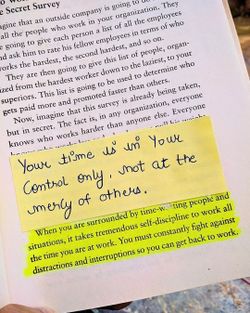 e Secret Survey
gine that an outside company is going to
all the people who work in your organization. They
e going to give each person a list of all the employees
nd ask him to rate his fellow employees in terms of who
orks the hardest, the second hardest, and so on.
They are then going to give this list of people, organ-
ized from the hardest worker down to the laziest, to your
superiors. This list is going to be used to determine who
gets paid more and promoted faster than others.
Now, imagine that this survey is already being taken,
but in secret. The fact is, in any organization, everyone
knows who works harder than anyone else. Everyone
Your time is in Your
Control only, not at the
mercy of others.
When you are surrounded by time-wasting people and
situations, it takes tremendous self-discipline to work all
the time you are at work. You must constantly fight against
distractions and interruptions so you can get back to work.